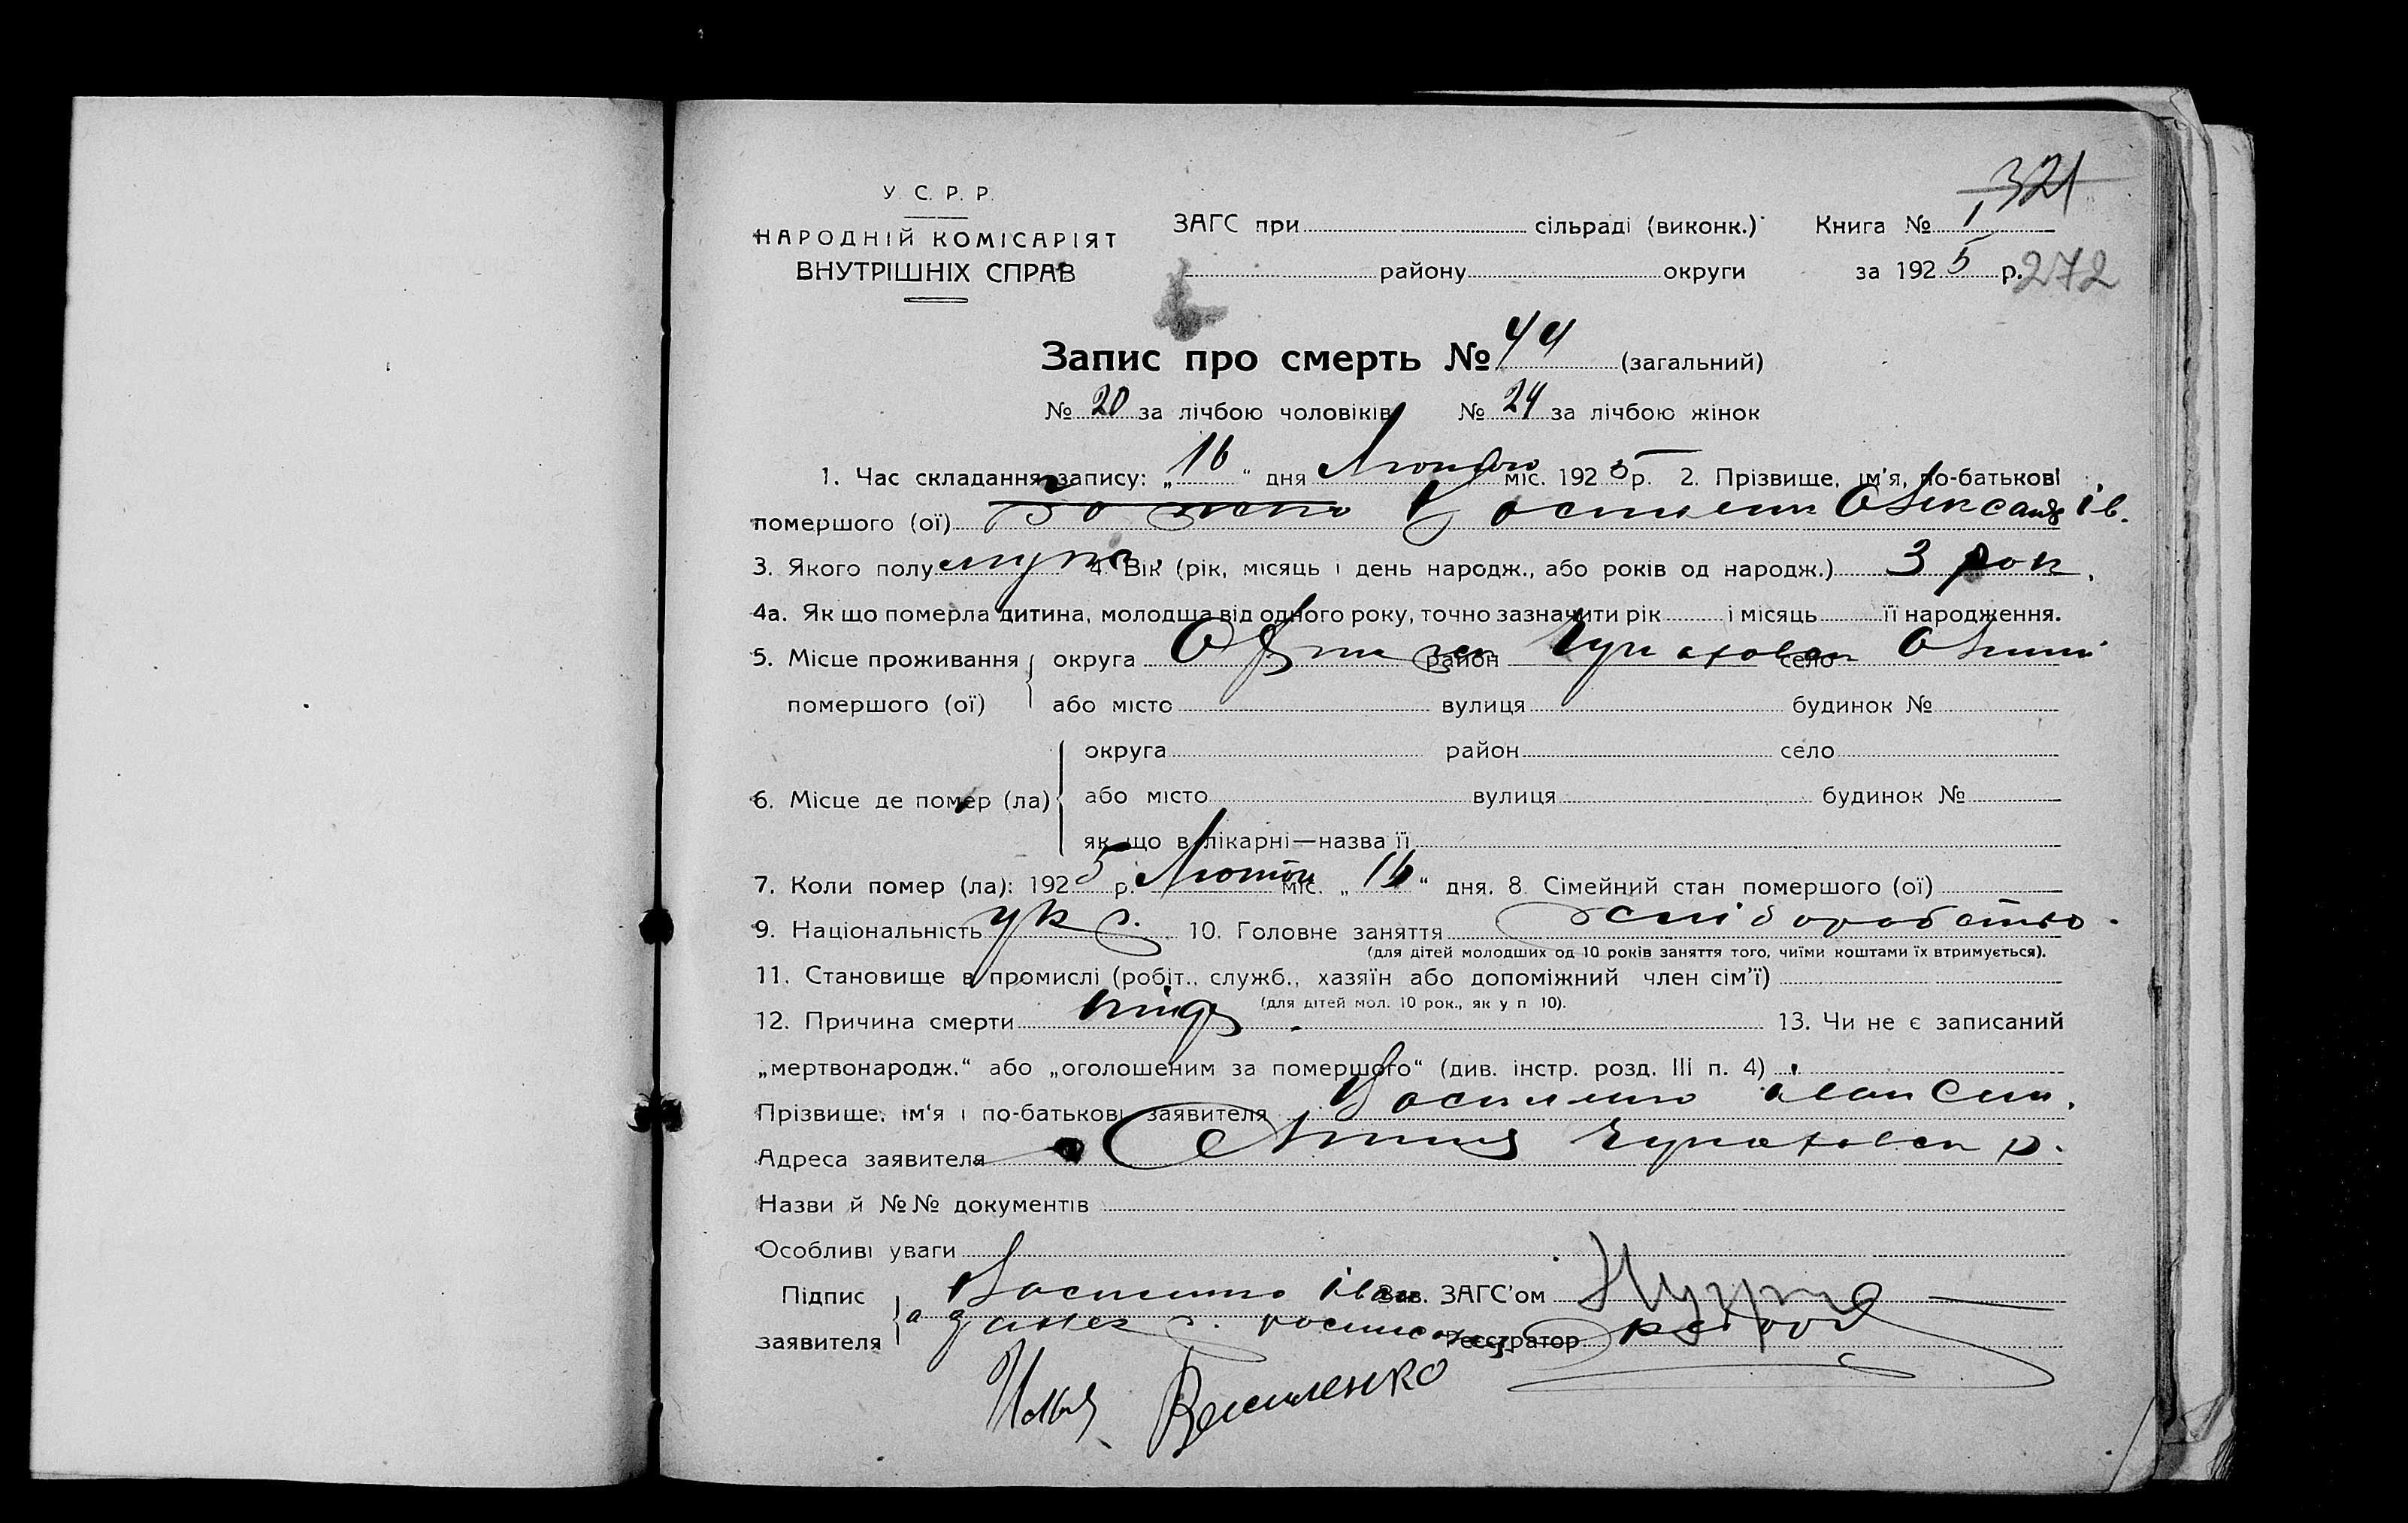 321
У. С. Р. Р.
НАРОДНІЙ КОМІСАРІЯТ
ВНУТРІШНІХ СПРАВ
ЗАГС при сільраді (виконк.) Книга № 1
району округи за 1925 р. 272
Запис про смерть № 44 (загальний)
№ 20 за лічбою чоловіків № 24 за лічбою жінок
1. Час складання запису: „16“ дня Лютого міс. 1925 р. 2. Прізвище, ім'я, по-батькові
помершого (ої) Олександ Ів.
3. Якого полу муж. 4. Вік (рік, місяць і день народж., або років од народж.) 3 рок.
4а. Як що померла дитина, молодща від одного року, точно зазначити рік і місяць її народження.
5. Місце проживання округа район село
помершого (ої) або місто вулиця будинок №
округа район село
6. Місце де помер (ла) або місто вулиця будинок №
як що в лікарні—назва її
7. Коли помер (ла): 1925 р. Лютого міс. „16“ дня. 8. Сімейний стан помершого (ої)
9. Національність укр. 10. Головне заняття хліборобство.
(для дітей молодших од 10 років заняття того, чиїми коштами їх втримується).
11. Становище в промислі (робіт., служб., хазяїн або допоміжний член сім'ї)
(для дітей мол. 10 рок., як у п 10).
12. Причина смерти 13. Чи не є записаний
„мертвонародж.“ або „оголошеним за помершого“ (див. інстр. розд. III п. 4)
Прізвище, ім'я і по-батькові заявителя Василенко Іван Сем.
Адреса заявителя р.
Назви й №№ документів
Особливі уваги
Підпис Василенко Іван Зав. ЗАГС'ом
заявителя а за него росписался Реєстратор
Василенко